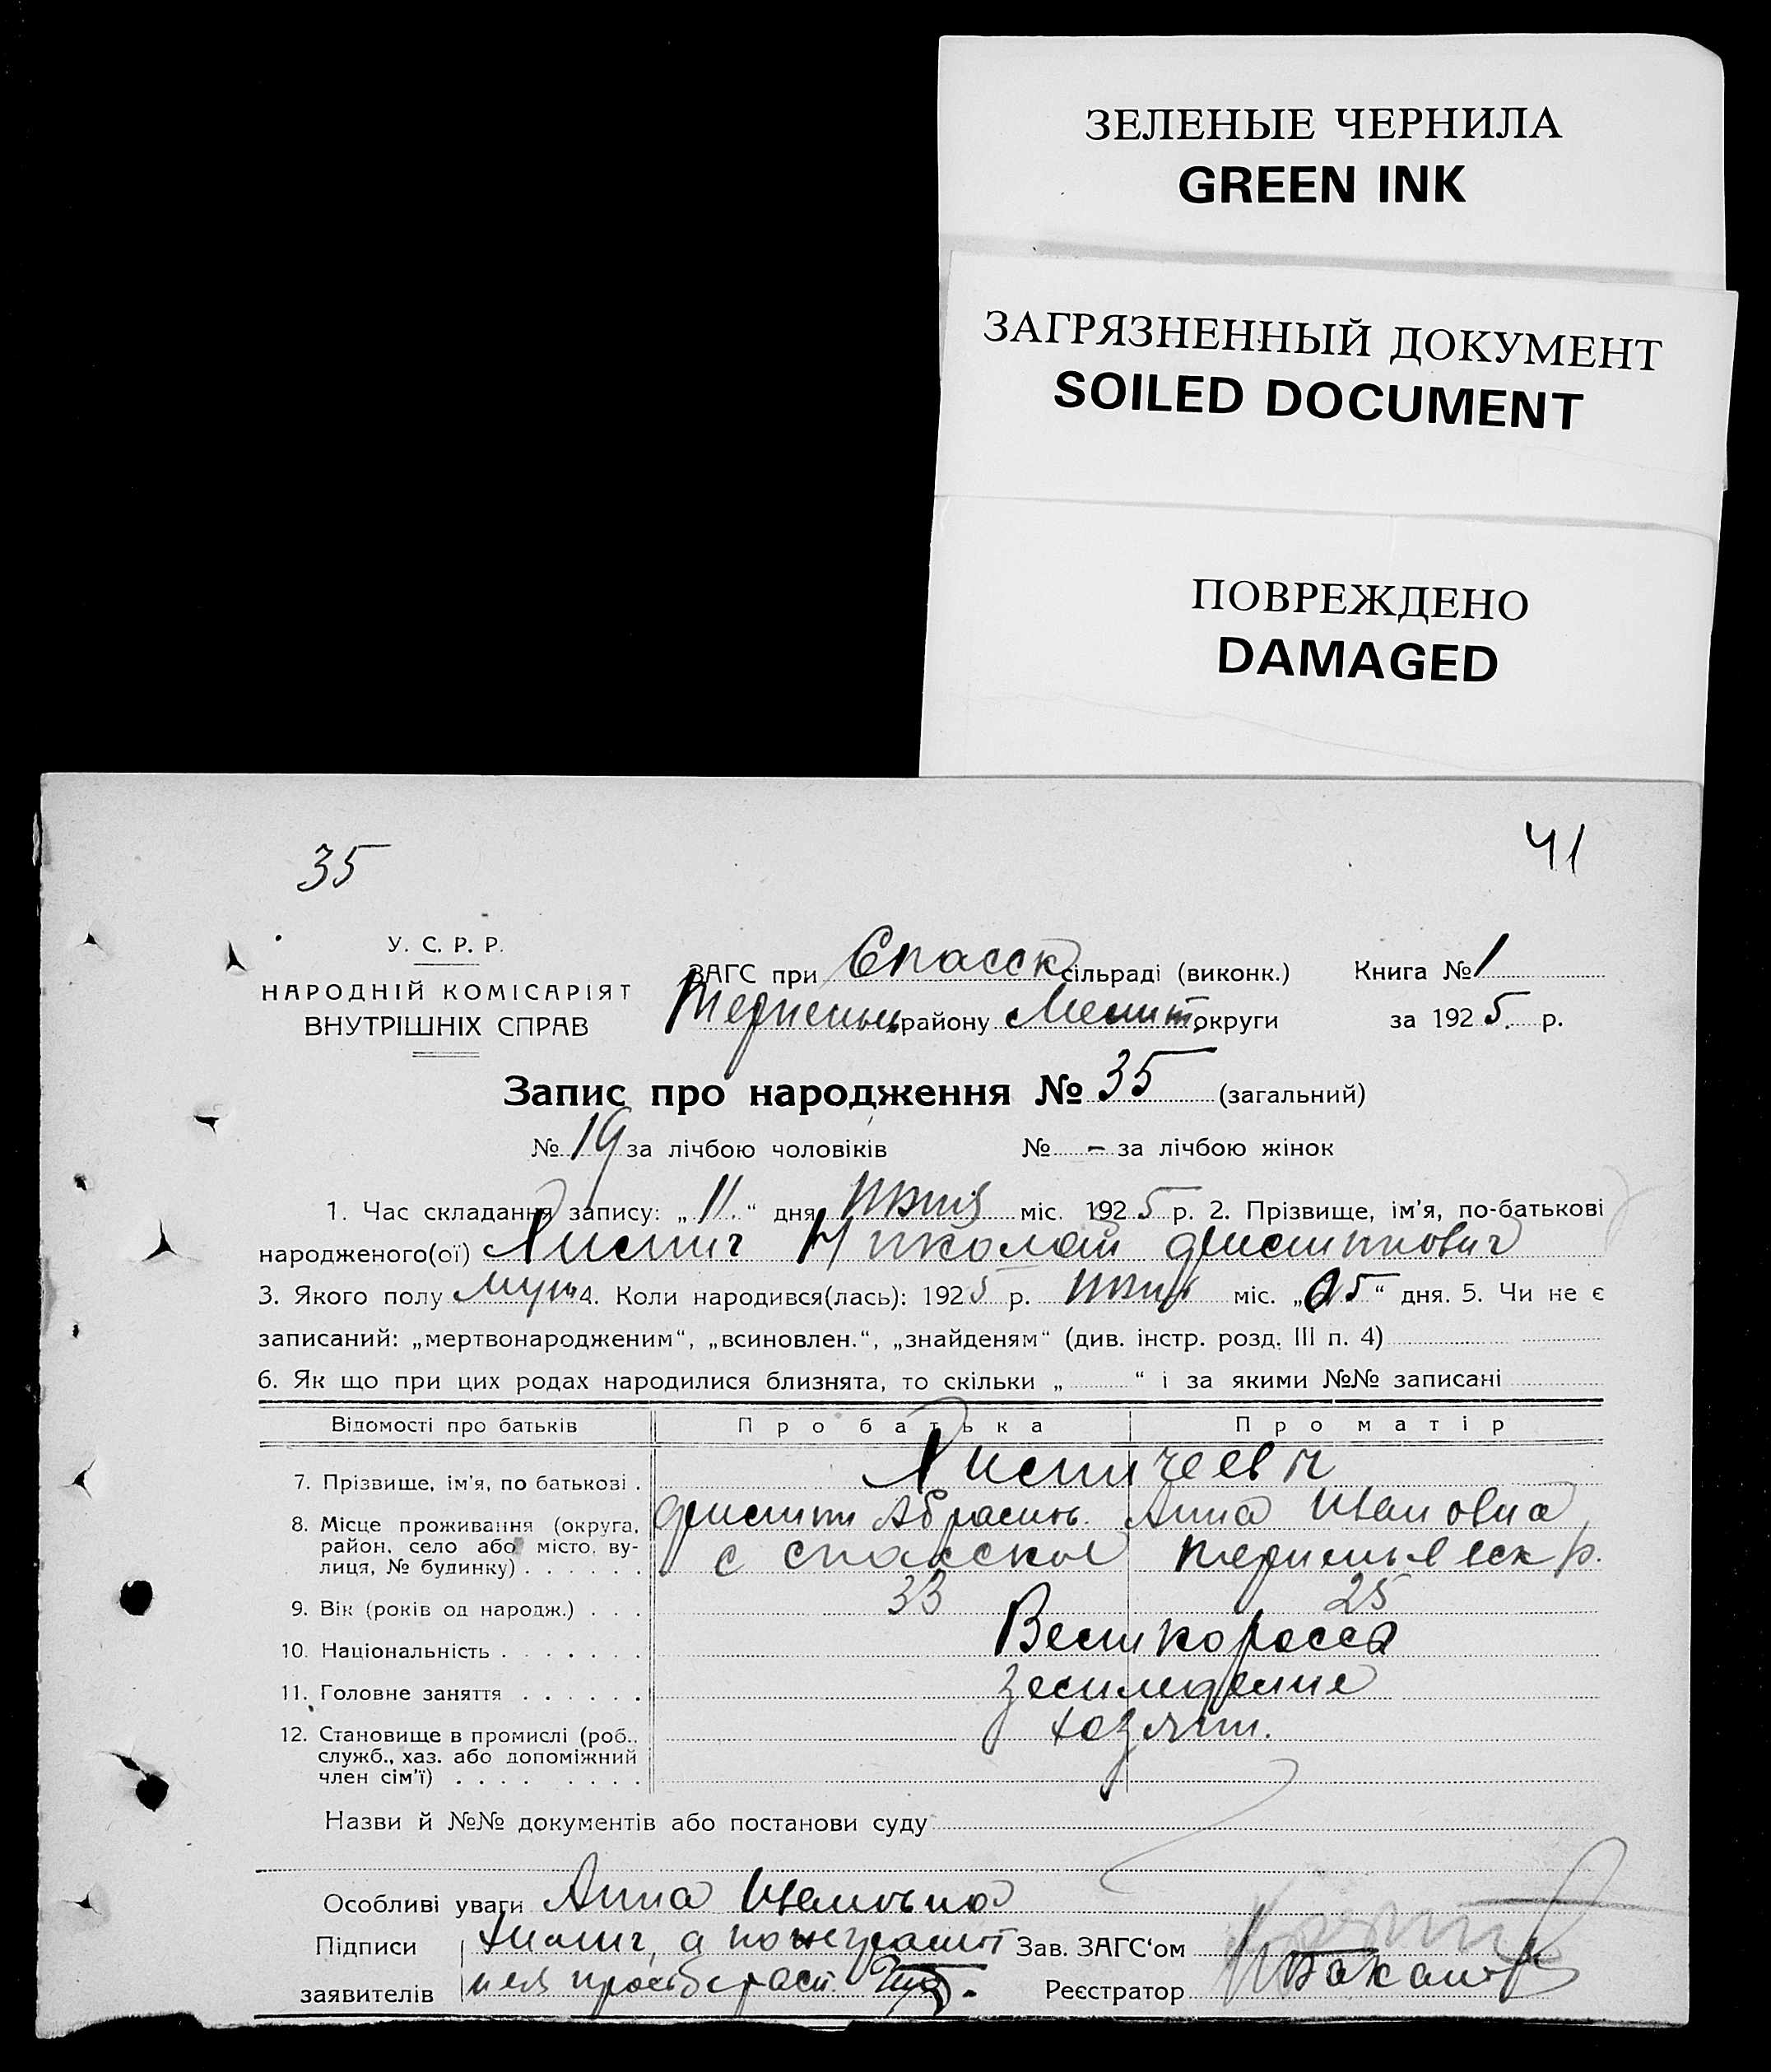 ЗЕЛЕНЫЕ ЧЕРНИЛА
GREEN INK
ЗАГРЯЗНЕННЫЙ ДОКУМЕНТ
SOILED DOCUMENT
ПОВРЕЖДЕНО
DAMAGED
35
41
У. С. Р. Р.
НАРОДНІЙ КОМІСАРІЯТ
ВНУТРІШНІХ СПРАВ
ЗАГС при Спасск сільраді (виконк.) Книга № 1
району Мелит. округи за 1925. р.
Запис про народження № 35 (загальний)
№ 19 за лічбою чоловіків № - за лічбою жінок
1. Час складання запису: „11.“ дня міс. 1925 р. 2. Прізвище, ім'я, по-батькові
народженого(ої) Николай
3. Якого полу муж 4. Коли народився(лась): 1925 р. міс. „05“ дня. 5. Чи не є
записаний: „мертвонародженим“, „всиновлен.“, „знайденям“ (див. інстр. розд. III п. 4)
6. Як що при цих родах народилися близнята, то скільки „ “ і за якими №№ записані
Відомості про батьків Про батька Про матір
7. Прізвище, ім'я, по батькові .
8. Місце проживання (округа, Анна Ивановна
район, село або місто, ву- с Спасское р.
лиця, № будинку) . . . . . .
9. Вік (років од народж.) . . . 33 25
10. Національність . . . . . . . Великоросы
11. Головне заняття . . . . . . земледелие
12. Становище в промислі (роб., хозяин.
служб., хаз. або допоміжний
член сім'ї) . . . . . . . . .
Назви й №№ документів або постанови суду
Особливі уваги Анна Ивановна
Підписи а по неграмот Зав. ЗАГС'ом
заявителів Реєстратор